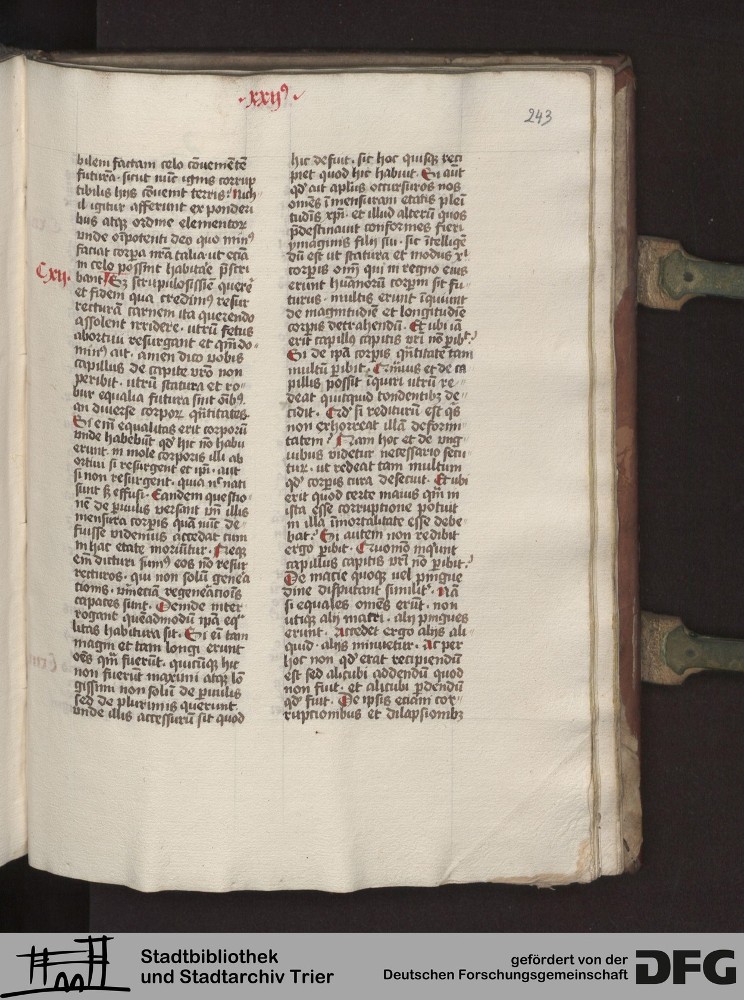 ·xxij⁹·
243
bilem factam celo cōuenientē
futurā· sicut nūc ignis corrup
tibilis hijs cōuenit terris· Nich
il igitur afferunt ex ponderi
bus atq̨ ordine elementoꝝ
vnde oīpotenti deo quo min⁹
faciat corpꝫa nr̄a talia ut eciā
in celo possint habitare p̄scri
Cxij.
bant· Sꝫ scrupulosissīe querere
et fidem qua credim⁹ resur
recturā carnem ita querendo
assolent irridere· utrū fetus
abortiui resurgant et qm̄ do-
min⁹ ait· amen dico vobis
capillus de capite vr̄o non
peribit· utrū statura et ro-
bur equalia futura sint oībꝫ
an diuerse corpoꝝ q̄ntitates·
Si em̄ equalitas erit corporū
vnde habebūt qd̕ hic nō habu
erunt in mole corporis illi ab
ortiui si resurgent et ip̄i· aut
si non resurgent· quia nō nati
sunt sꝫ effusi· Eandem questio-
nē de paruulis versant vn̄ illis
mensura corpꝫis quā nūc de-
fuisse videmus accedat cum
in hac etate moriūtur· Neq̨
em̄ dicturi sum⁹ eos nō resur
recturos· qui non solū genera
tionis· verūetiā regeneracionis
capaces sunt· Deinde inter
rogant quēadmodū ip̄a eq̄
litas habitura sit· Si em̄ tam
magni et tam longi erunt
oēs qm̄ fuerūt· quicūq̨ hic
non fuerūt maximi atq̨ lō
gissimi non solū de paruulis
sed de plurimis querunt
vnde illis accessurū sit quod
hic defuit· sic hoc quisq̨ reci
piet quod hic habuit· Si aūt
qd̕ ait aplūs occursuros nos
omēs ī mensuram etatis pleni
tudīs xpī· et illud alterū quos
p̄destinauit conformes fieri
ymaginis filij sui· sic ītellige
dū est ut statura et modus x̄
corpꝫis oīm qui in regno eius
erunt hūanorū corpꝫm sit fu
turus· multis erunt īquiunt
de magnitudīe et longitudīe
corpꝫis detrahendū· Et ubi iā
erit capillꝫ capitis vr̄i nō pib̄t·
Si de ip̄a corpꝫis q̄ntitate tam
multū pibit· Quāuis et de ca
pillis possit īquiri utrū re-
deat quicquid tondentibꝫ de-
cidit· Qd̕ si rediturū est q̄s
non exhorreat illā deformi-
tatem? Nam hoc et de vng-
uibus videtur necessario secu
tur· ut redeat tam multum
qd̕ corpꝫis cura desecuit· Et ubi
erit quod certe maius qm̄ in
ista esse corruptione potuit
in illa īmortalitate esse debe-
bat? Si autem non redibit
ergo pibit· Quomō inquiunt
capillus capitis vr̄i nō pibit?
De macie quoq̨ uel pingue
dine disputant similit̕· Nā
si equales omēs erūt· non
utiq̨ alij macri· alij pingues
erunt· Accedet ergo alijs ali-
quid· alijs minuetur· Ac per
hoc non qd̕ erat recipiendū
est sed alicubi addendū quod
non fuit· et alicubi pdendū
qd̕ fuit· De ipsis eciam cor-
rupcionibus et dilapsionibꝫ
Stadtbibliothek
und Stadtarchiv Trier
gefördert von der
Deutschen Forschungsgemeinschaft
DFG